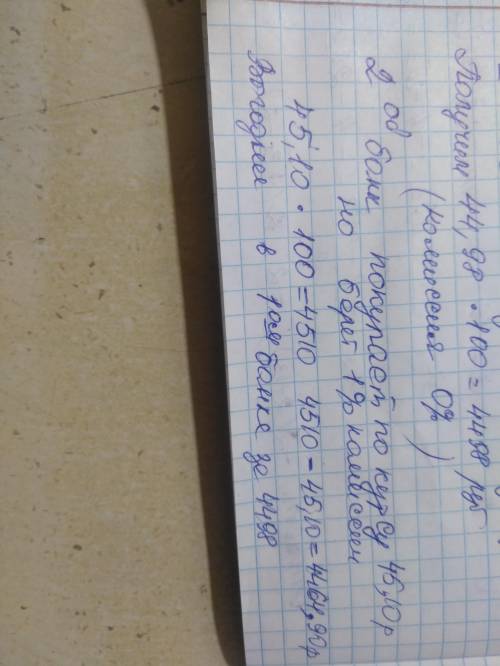 Получим 44,98 · 100 = 4498 руб
(комиссия 0р)
2 ой банк покупает по курсу 45,10р
но берёт 1% комиссии
45,10 · 100 = 4510 4510 - 45,10 = 4464,90р
Выгоднее в 1ом банке за 4498